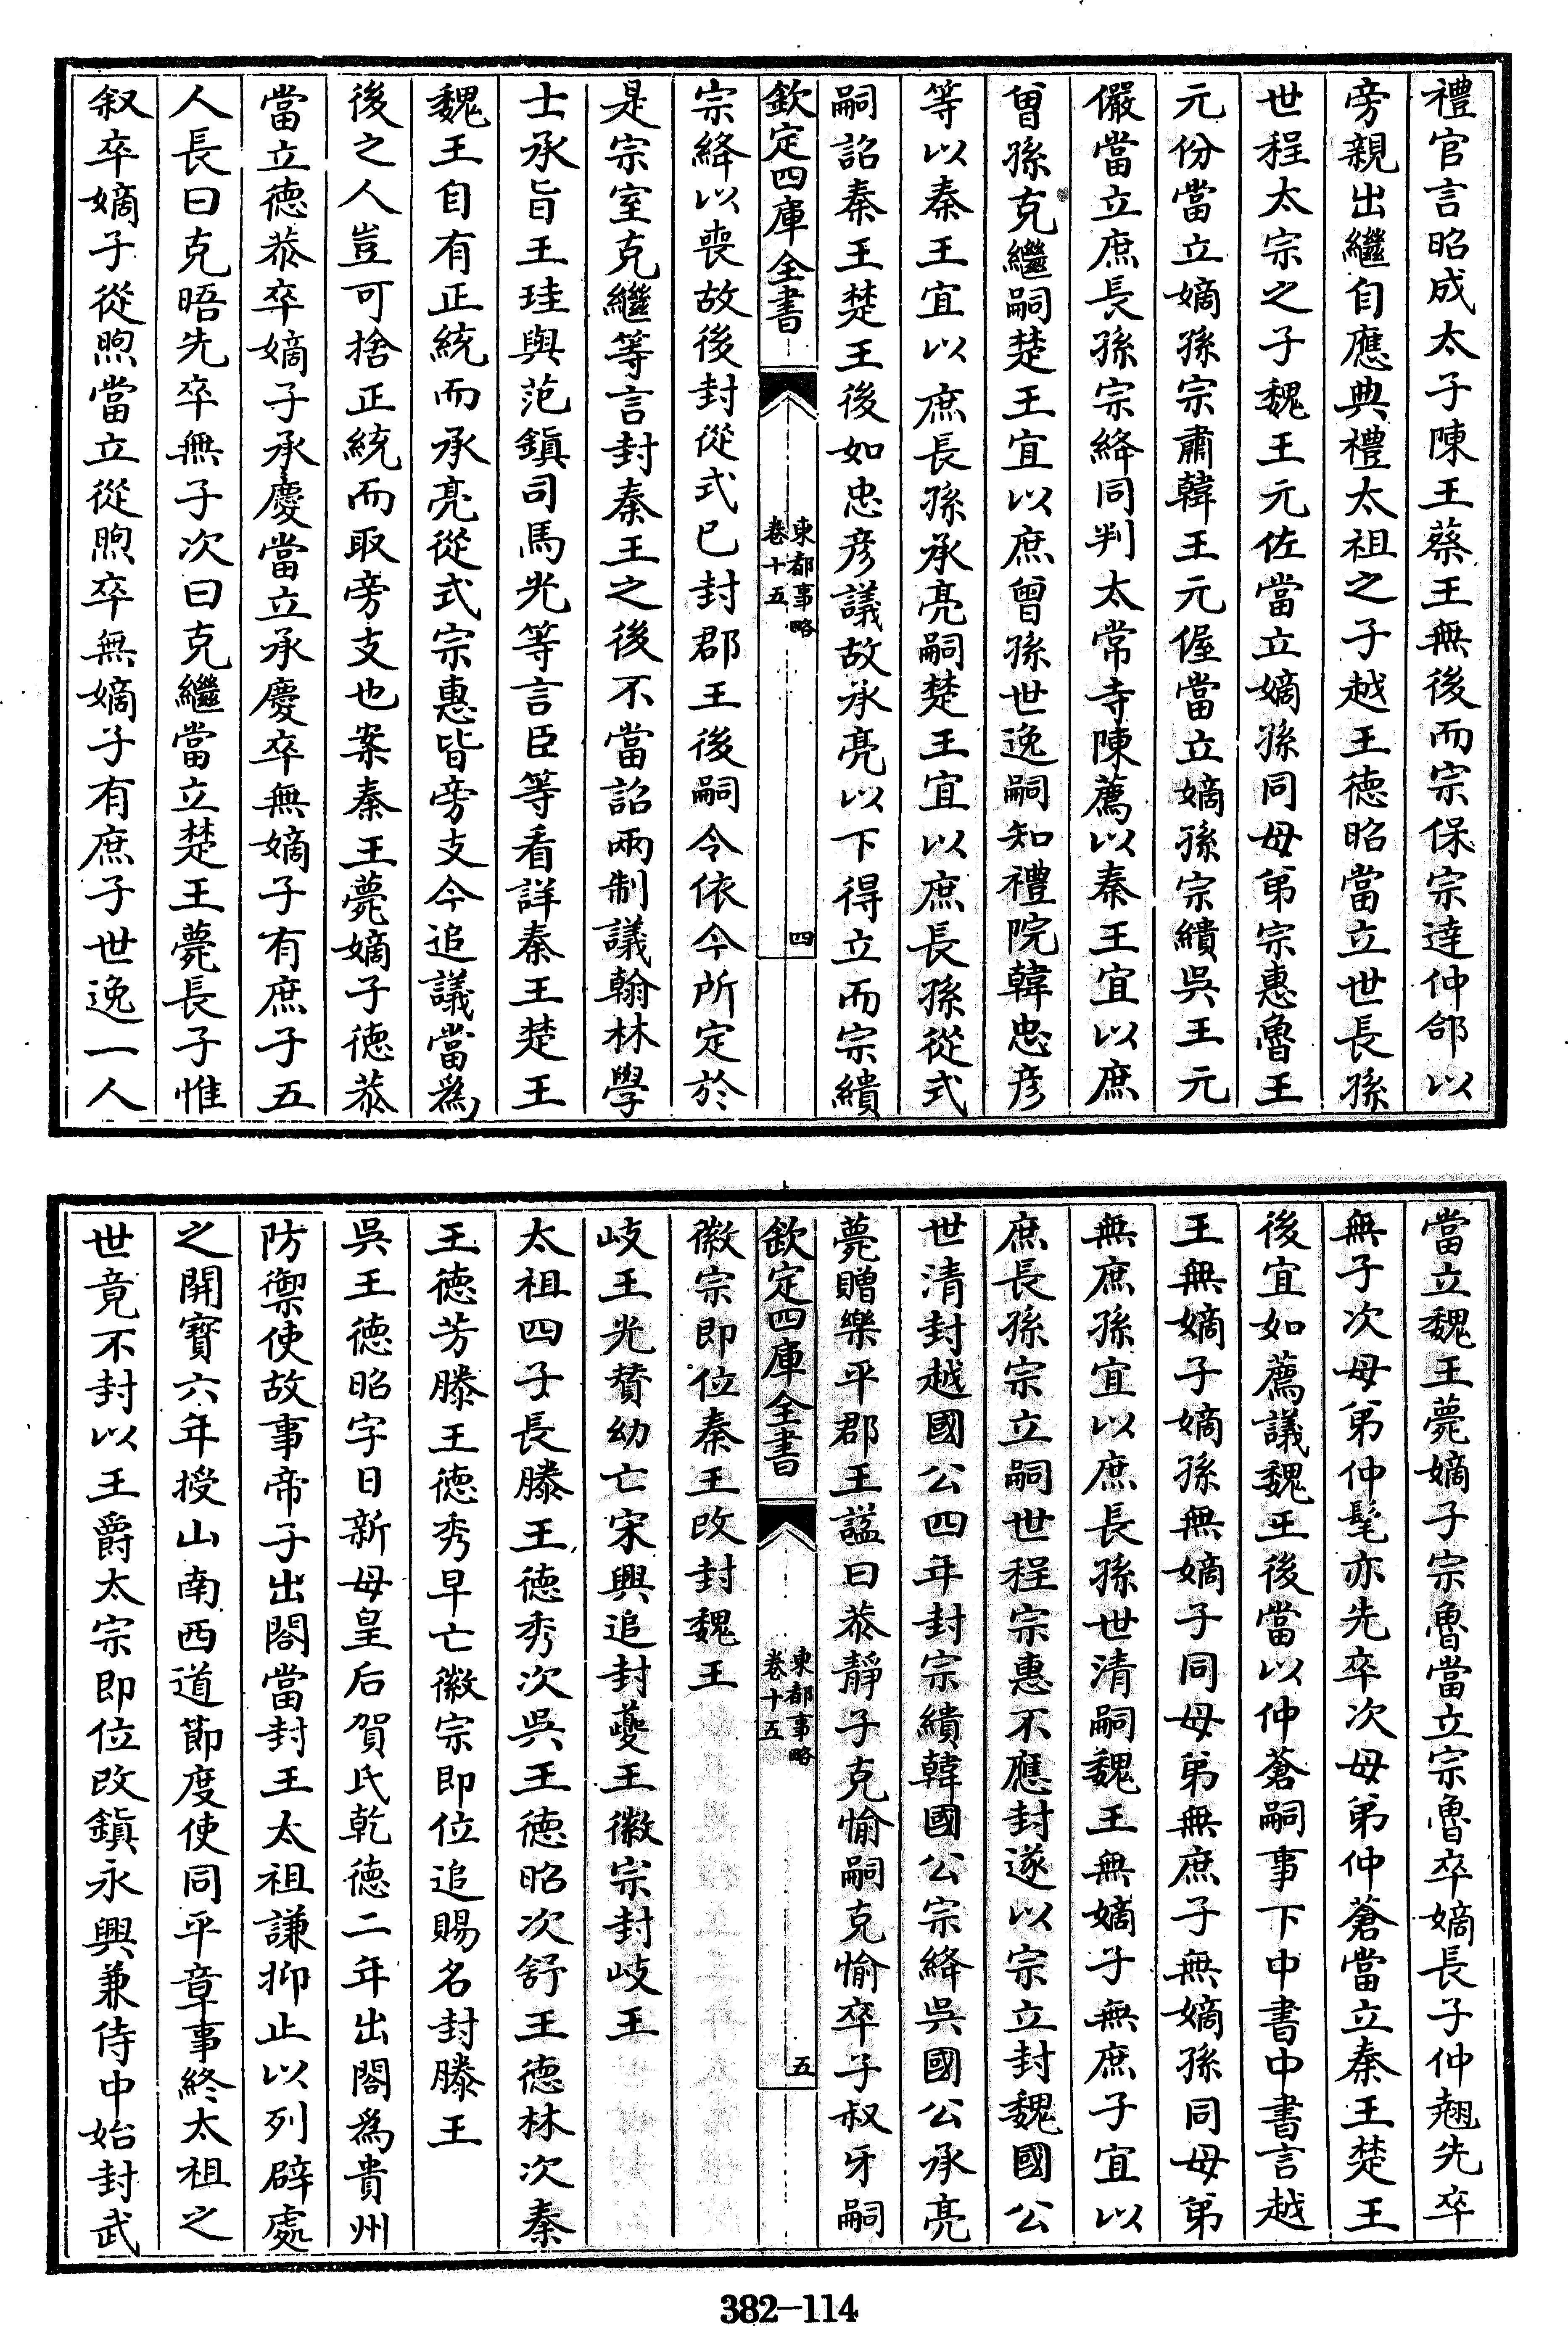 禮官言昭成太子陳王蔡王無後而宗保宗達仲郃以
旁親出繼自應典禮太祖之子越王德昭當立世長孫
世程太宗之子魏王元佐當立嫡孫同母弟宗惠魯王
元份當立嫡孫宗肅韓王元偓當立嫡孫宗繢吳王元
儼當立庶長孫宗絳同判太常寺陳薦以秦王宜以庶
曾孫克繼嗣楚王宜以庶曾孫世逸嗣知禮院韓忠彦
等以秦王宜以庶長孫承亮嗣楚王宜以庶長孫從式
嗣詔秦王楚王後如忠彦議故承亮以下得立而宗繢
欽定四庫全書
東都事略
卷十五
四
宗絳以喪故後封從式已封郡王後嗣令依今所定於
是宗室克繼等言封秦王之後不當詔兩制議翰林學
士承旨王珪與范鎮司馬光等言臣等看詳秦王楚王
魏王自有正統而承亮從式宗惠皆旁支今追議當為
後之人豈可捨正統而取旁支也案秦王薨嫡子德恭
當立德恭卒嫡子承慶當立承慶卒無嫡子有庶子五
人長曰克晤先卒無子次曰克繼當立楚王薨長子惟
叙卒嫡子從煦當立從煦卒無嫡子有庶子世逸一人
當立魏王薨嫡子宗魯當立宗魯卒嫡長子仲翹先卒
無子次母弟仲髦亦先卒次母弟仲蒼當立秦王楚王
後宜如薦議魏王後當以仲蒼嗣事下中書中書言越
王無嫡子嫡孫無嫡子同母弟無庶子無嫡孫同母弟
無庶孫宜以庶長孫世清嗣魏王無嫡子無庶子宜以
庶長孫宗立嗣世程宗惠不應封遂以宗立封魏國公
世清封越國公四年封宗繢韓國公宗絳吳國公承亮
薨贈樂平郡王諡曰恭靜子克愉嗣克愉卒子叔牙嗣
欽定四庫全書
東都事略
卷十五
五
徽宗即位秦王改封魏王
岐王光贊幼亡宋興追封夔王徽宗封岐王
太祖四子長滕王德秀次吳王德昭次舒王德林次秦
王德芳滕王德秀早亡徽宗即位追賜名封滕王
吳王德昭字日新母皇后賀氏乾德二年出閤為貴州
防禦使故事帝子出閤當封王太祖謙抑止以列辟處
之開寶六年授山南西道節度使同平章事終太祖之
世竟不封以王爵太宗即位改鎮永興兼侍中始封武
382-114